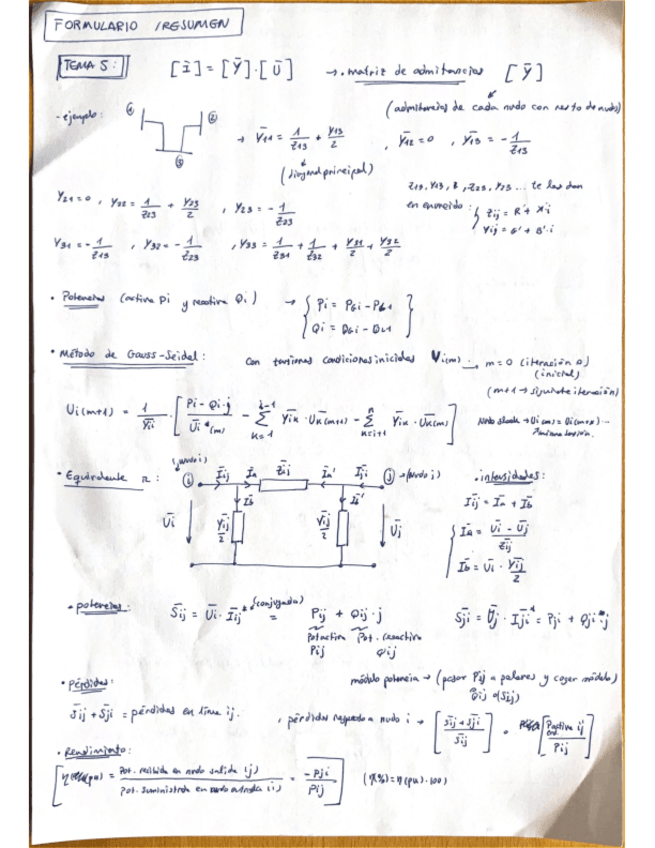 FORMULARIO /RESUMEN
TEMA 5: [Ī] = [Ȳ]·[Ū] → · matriz de admitancias [Ȳ]
(admitancias de cada nudo con resto de nudos)
- ejemplo: ① ② ③ → Ȳ11 = 1/Z13 + Y13/2 , Ȳ12 = 0 , Ȳ13 = - 1/Z13
(diagonal principal)
Y21 = 0 , Y22 = 1/Z23 + Y23/2 , Y23 = - 1/Z23
Z13, Y13, Z23, Y23 ... te las dan
en enunciado: { Zij = R' + X'i
Yij = G' + B'·i
Y31 = - 1/Z13 , Y32 = - 1/Z23 , Y33 = 1/Z31 + 1/Z32 + Y31/2 + Y32/2
· Potencias (activa Pi y reactiva Qi) → { Pi = PGi - PDi
Qi = QGi - QDi }
· Método de Gauss-Seidel: Con tensiones condiciones iniciales Vi(m) → m = 0 (iteración 0)
(inicial)
(m+1 → siguiente iteración)
Ui(m+1) = 1/Ȳii · [ Pi - Qi·j / Ūi*(m) - Σ k=1 i-1 Ȳik · Ūk(m+1) - Σ k=i+1 n Ȳik · Ūk(m) ]
Nudo slack → Ui(m) = Ui(m+1)
· Equivalente π: (nudo i) i Īij Īa Z̄ij Īa' Īji j → (nudo j)
Īb Īb'
Ūi Ȳij/2 Ȳij/2 Ūj
· intensidades:
Īij = Īa + Īb
{ Īa = Ūi - Ūj / Z̄ij
Īb = Ūi · Ȳij/2
· potencias: S̄ij = Ūi · Īij* (conjugada) = Pij + Qij·j
Pot activa Pij Pot. reactiva Qij
S̄ji = Ūj · Īji* = Pji + Qji·j
· Pérdidas: módulo potencia → (pasar Pij a polares y coger módulo)
S̄ij + S̄ji = pérdidas en línea ij. , pérdidas respecto a nudo i → [ S̄ij + S̄ji / S̄ij ]
· Rendimiento:
[ η(pu) = Pot. recibida en nudo salida (j) / Pot. suministrada en nudo entrada (i) = -Pji / Pij ] (η(%) = η(pu)·100)